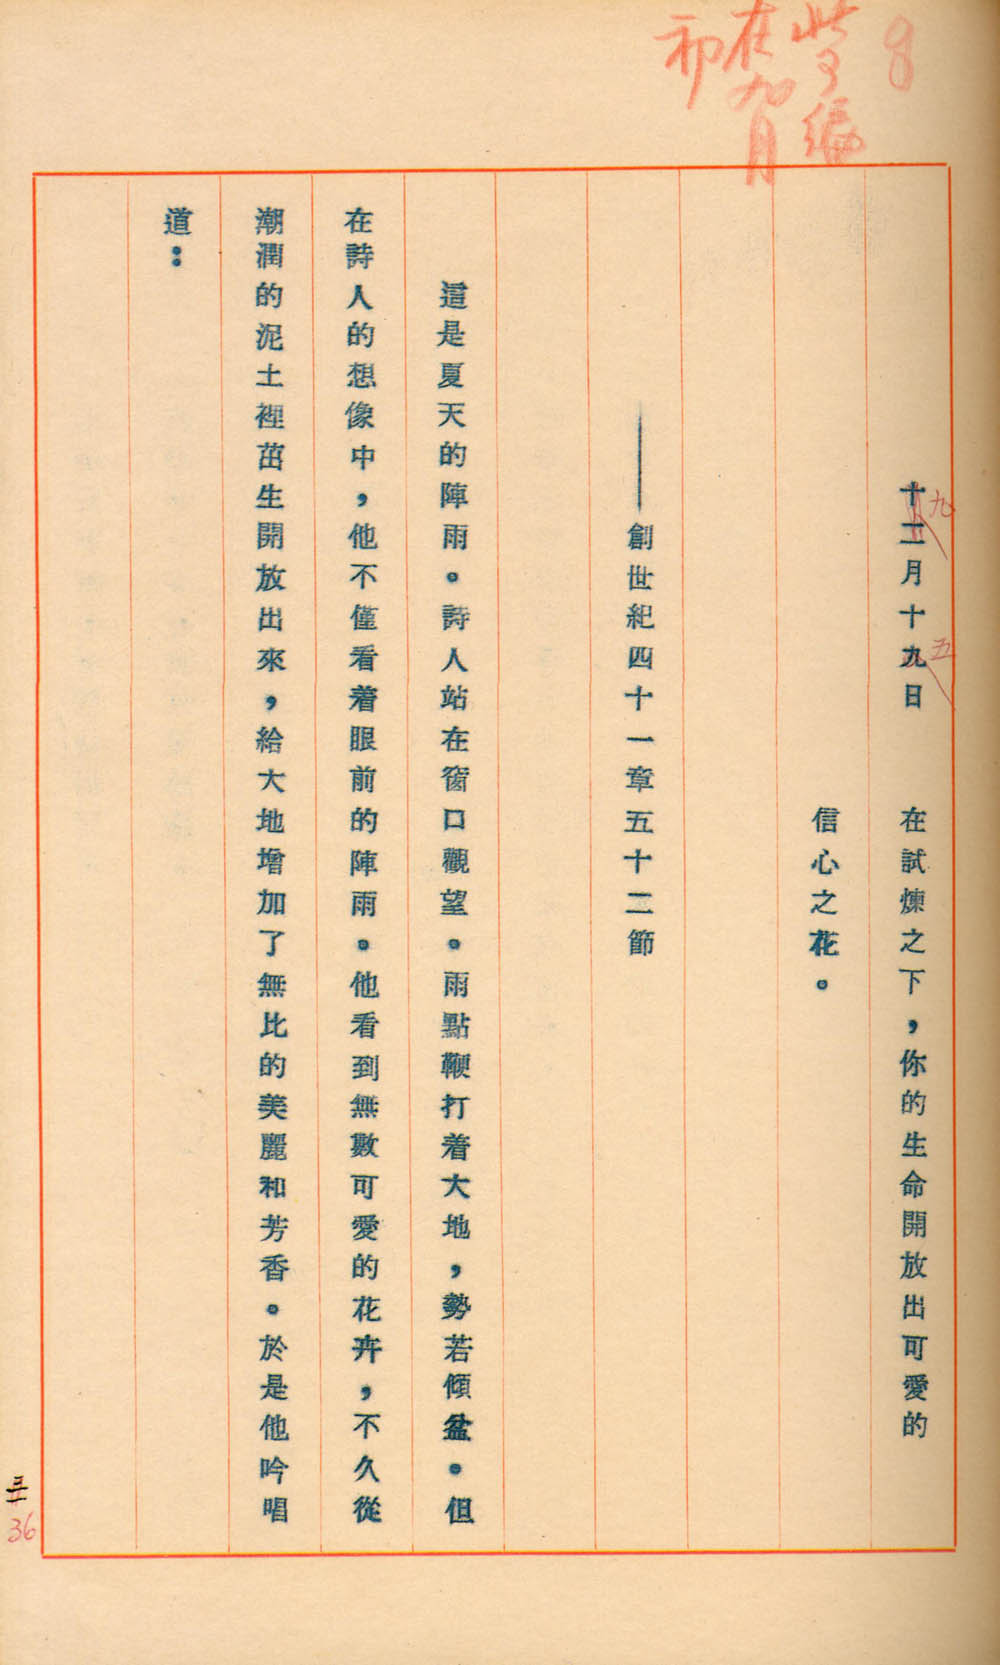 8
此另編
在九月
初
十二月十九日　在試煉之下，你的生命開放出可愛的
九
五
信心之花。
——創世紀四十一章五十二節
這是夏天的陣雨。詩人站在窗口觀望。雨點鞭打着大地，勢若傾盆。但
在詩人的想像中，他不僅看着眼前的陣雨。他看到無數可愛的花卉，不久從
潮潤的泥土裡茁生開放出來，給大地增加了無比的美麗和芳香。於是他吟唱
道：
36